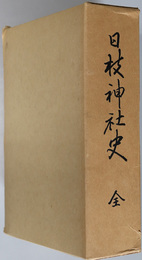 日枝神社史 全